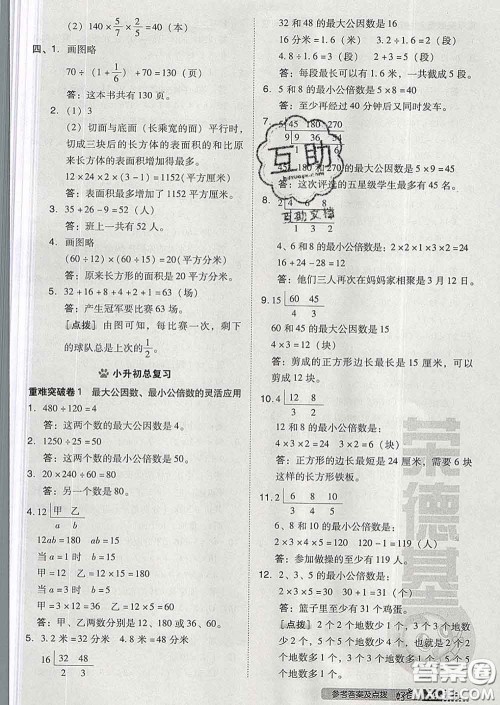 (2) 140×5/7×7/5=140(本)
四、1. 画图略
70÷(1+1/6)+70=130(页)
答：这本书共有130页。
2. (1) 3
(2) 切面与底面(长乘宽的面)平行时，
切成三块后的长方体的表面积的和比原
来长方体的表面积增加最多。
12×24×2×(3-1)=1152(平方厘米)
答：表面积最多增加了1152平方厘米。
3. 35+26-9=52(人)
答：班上一共有52人。
4. 画图略
(60÷12)×(60÷2)=150(平方厘米)
答：原来长方形的面积是150平方厘米。
5. 32+16+8+4+2+1=63(场)
答：产生冠军要比赛63场。
[点拨] 由图可知，每比赛一次，剩下
的球队总是上次的1/2。
小升初总复习
重难突破卷1 最大公因数、最小公倍数的灵活应用
1. 480÷120=4
答：这两个数的最大公因数是4。
2. 1250÷25=50
答：这两个数的最小公倍数是50。
3. 20×240÷60=80
答：另一个数是80。
4. 12 甲 乙
a b
12ab=180 ab=15
当a=1时 b=15
当a=3时 b=5
12×1=12 12×15=180
12×3=36 12×5=60
答：甲、乙两数分别是12、180或36、60。
5. 3.2米=32分米 4.8米=48分米
16 32 48
2 3
32和48的最大公因数是16
16分米=1.6米 3.2÷1.6=2(段)
4.8÷1.6=3(段) 2+3=5(段)
答：每段最长可以有1.6米，一共截成5段。
6. 5和8的最小公倍数是5×8=40
答：至少再过40分钟后又同时发车。
7. 5 45 180 270
9 9 36 54
1 4
45、180和270的最大公因数是5×9=45
答：这次评选的五星级学生最多有45名。
8. 2 4 6 8
1 3 2
4、6和8的最小公倍数是：2×2×1×3×2=24
16+24-28=12(日)
答：他们三人再次在妈妈家相聚是3月12日。
9. 15 60 45
4 3
60和45的最大公因数是15
4×3=12(块)
答：剪成的正方形边长最长是15厘米，可以
剪12块。
10. 4 12 8
3 2
12和8的最小公倍数是：4×3×2=24
3×2=6(块)
答：正方形的边长最短是24厘米，需要6块
这样的长方形铁板。
11. 2 6 8 10
3 4 5
6、8和10的最小公倍数是：
2×3×4×5=120 120-1=119(人)
答：参加做操的至少有119人。
12. 2、3、5的最小公倍数是：
2×3×5=30 30+1=31(个)
答：篮子里至少有31个鸡蛋。
[点拨] 2个2个地数少1个，3个3个地
数少2个，5个5个地数少4个即2个2
个地数多1个，3个3个地数多1个，5个
5个地数多1个。
互助
互助文档
荣德基
参考答案及点拨
答案圈
MXQE.COM